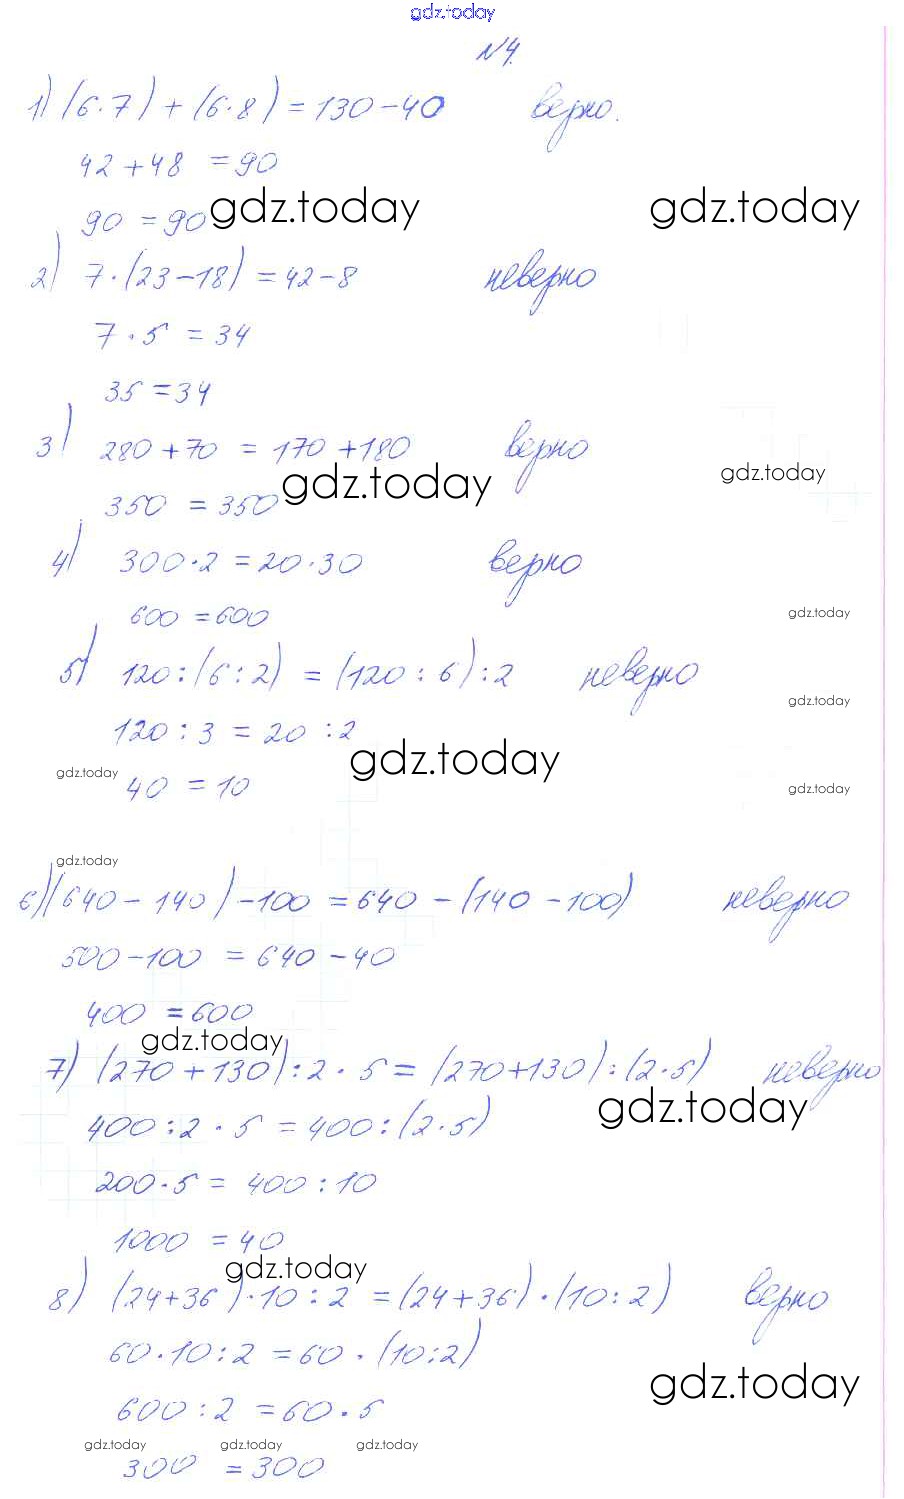 gdz.today
№4.
1) (6·7) + (6·8) = 130 - 40 верно.
42 + 48 = 90
90 = 90 gdz.today gdz.today
2) 7·(23-18) = 42-8 неверно
7·5 = 34
35 = 34
3) 280+70 = 170+180 верно
gdz.today gdz.today
350 = 350
4) 300·2 = 20·30 верно
600 = 600 gdz.today
5) 120:(6:2) = (120:6):2 неверно
gdz.today
120:3 = 20:2
gdz.today
gdz.today 40 = 10 gdz.today
gdz.today
6) (640-140)-100 = 640-(140-100) неверно
500-100 = 640-40
400 = 600
gdz.today
7) (270+130):2·5 = (270+130):(2·5) неверно
gdz.today
400:2·5 = 400:(2·5)
200·5 = 400:10
1000 = 40
gdz.today
8) (24+36)·10:2 = (24+36)·(10:2) верно
60·10:2 = 60·(10:2)
gdz.today
600:2 = 60·5
gdz.today gdz.today gdz.today
300 = 300